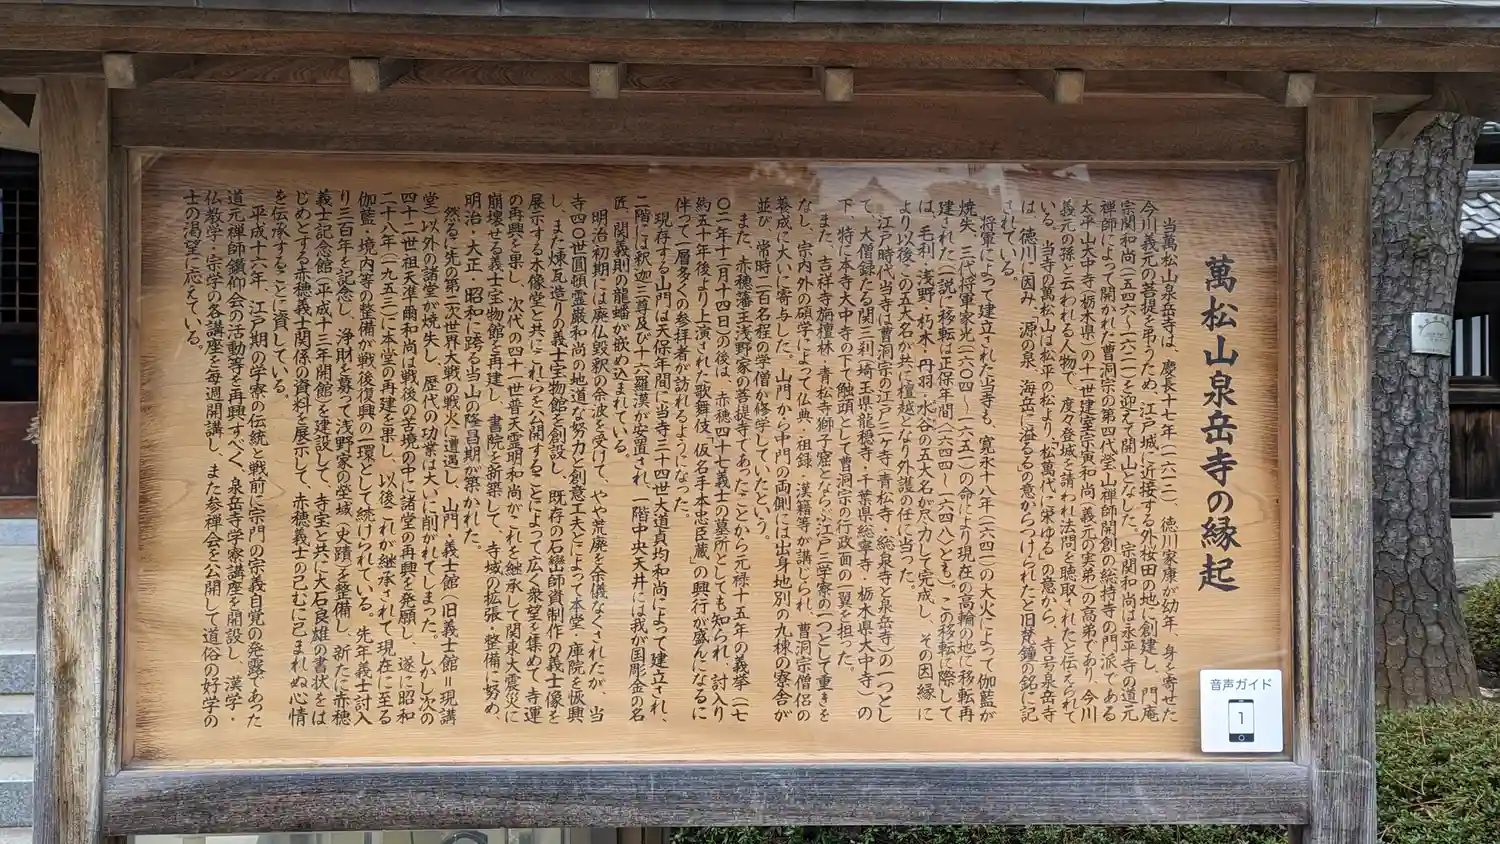 萬松山泉岳寺の縁起
当萬松山泉岳寺は、慶長十七年(一六一二)、徳川家康が幼年、身を寄せた
今川義元の菩提を弔うため、江戸城に近接する外桜田の地に創建し、門庵
宗関和尚(一五四六〜一六二一)を迎えて開山となした。宗関和尚は永平寺の道元
禅師によって開かれた曹洞宗の第四代瑩山禅師開創の総持寺の門派である
太平山大中寺(栃木県)の十一世建室宗寅和尚(義元の実弟)の高弟であり、今川
義元の孫と云われる人物で、度々登城を請われ法問を聴取されたと伝えられて
いる。当寺の萬松山は松平の松より、「松萬代に栄ゆる」の意から、寺号泉岳寺
は、徳川に因み、「源の泉 海岳に溢るる」の意からつけられたと旧梵鐘の銘に記
されている。
将軍によって建立された当寺も、寛永十八年(一六四一)の大火によって伽藍が
焼失、三代将軍家光(一六〇四〜一六五一)の命により現在の高輪の地に移転再
建された(一説に移転は正保年間〈一六四四〜一六四八〉とも)。この移転に際して
は、毛利・浅野・朽木・丹羽・水谷の五大名が尽力して完成し、その因縁に
より以後この五大名が共に檀越となり外護の任に当った。
江戸時代当寺は曹洞宗の江戸三ケ寺(青松寺・総泉寺と泉岳寺)の一つとし
て、大僧録たる関三刹(埼玉県龍穏寺・千葉県総寧寺・栃木県大中寺)の
下、特に本寺大中寺の下で触頭として曹洞宗の行政面の一翼を担った。
また、吉祥寺旃檀林・青松寺獅子窟とならぶ江戸三学寮の一つとして重きを
なし、宗内外の碩学によって仏典・祖録・漢籍等が講じられ、曹洞宗僧侶の
養成に大いに寄与した。山門から中門の両側には出身地別の九棟の寮舎が
並び、常時二百名程の学僧が修学していたという。
また、赤穂藩主浅野家の菩提寺であったことから元禄十五年の義挙(一七
〇二年十二月十四日)の後は、赤穂四十七義士の墓所としても知られ、討入り
約五十年後より上演された歌舞伎、「仮名手本忠臣蔵」の興行が盛んになるに
伴って一層多くの参拝者が訪れるようになった。
現存する山門は天保年間に当寺三十四世大道貞均和尚によって建立され、
二階には釈迦三尊及び十六羅漢が安置され、一階中央天井には我が国彫金の名
匠、関義則の龍蟠が嵌め込まれている。
明治初期には廃仏毀釈の余波を受けて、やや荒廃を余儀なくされたが、当
寺四〇世圓頓霊巖和尚の地道な努力と創意工夫とによって本堂・庫院を恢興
し、また煉瓦造りの義士宝物館を創設し、既存の石巒師資制作の義士像を
展示する木像堂と共にこれらを公開することによって広く衆望を集めて、寺運
の再興を果し、次代の四十一世普天霊明和尚がこれを継承して関東大震災に
崩壊せる義士宝物館を再建し、書院を新築して、寺域の拡張・整備に努め、
明治・大正・昭和に跨る当山の隆昌期が築かれた。
然るに先の第二次世界大戦の戦火に遭遇し、山門・義士館(旧義士館=現講
堂)以外の諸堂が焼失し、歴代の功業は大いに削がれてしまった。しかし次の
四十二世祖天準爾和尚は戦後の苦境の中に諸堂の再興を発願し、遂に昭和
二十八年(一九五三)に本堂の再建を果し、以後これが継承されて現在に至る
伽藍・境内等の整備が戦後復興の一環として続けられている。先年義士討入
り三百年を記念し、浄財を募って浅野家の塋域(史蹟)を整備し、新たに赤穂
義士記念館(平成十三年開館)を建設して、寺宝と共に大石良雄の書状をは
じめとする赤穂義士関係の資料を展示して、赤穂義士の已むに已まれぬ心情
を伝承することに資している。
平成十六年、江戸期の学寮の伝統と戦前に宗門の宗義自覚の発露であった
道元禅師鑽仰会の活動等を再興すべく、泉岳寺学寮講座を開設し、漢学・
仏教学・宗学の各講座を毎週開講し、また参禅会を公開して道俗の好学の
士の渇望に応えている。
音声ガイド
1